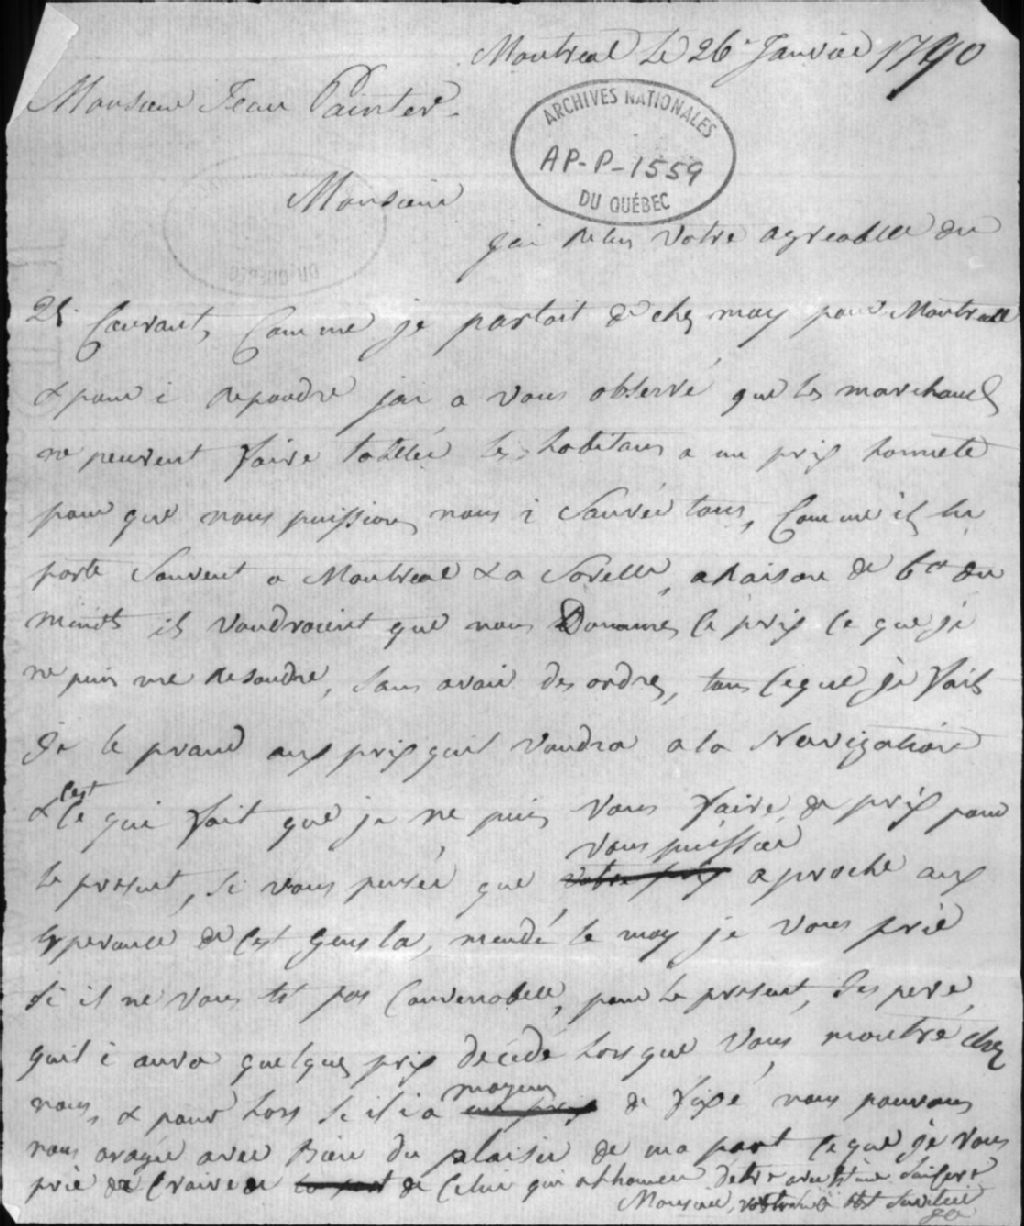 Montreal Le 26 Janvier 1790
Monsieur Jean Painter
ARCHIVES NATIONALES
AP-P-1559
DU QUÉBEC
Monsieur
jai Resus Votre agreable du
25 Courant, Comme je partoit de chez moy pour Montreall
& pour i Repondre jai a vous observé que les marchands
ne peuvent faire les habitans a un prix honnete
pour que nous puissions nous i Sauvér tous, Comme ils les
porte Souvent a Montreal & a Sorelle, a Raison de du
minots ils Voudroient que nous le prix ce que je
ne puis me Resoudre, Sans avoir des ordres, tous ce que je fait
Je le prand aux prix quil Voudra a la Navigation
& Cest
Ce qui fait que je ne puis Vous faire de prix pour
vous puissiee
le present, Si vous pensée que votre prix aproche aux
Esperance de Cest Gens la, mendé le moy je Vous prie
Si il ne vous est pas Convenabell, pour le present, Jespere
quil i aura quelques prix décidé Lors que Vous montré chez
moyens
nous, & pour Lors Si il i a un prix de fixé, nous pouvons
nous avec Bien du plaisir de ma part Ce que je vous
prie de Croire de la part de Celui qui a lhonneur Detre
Monsieur, Serviteur